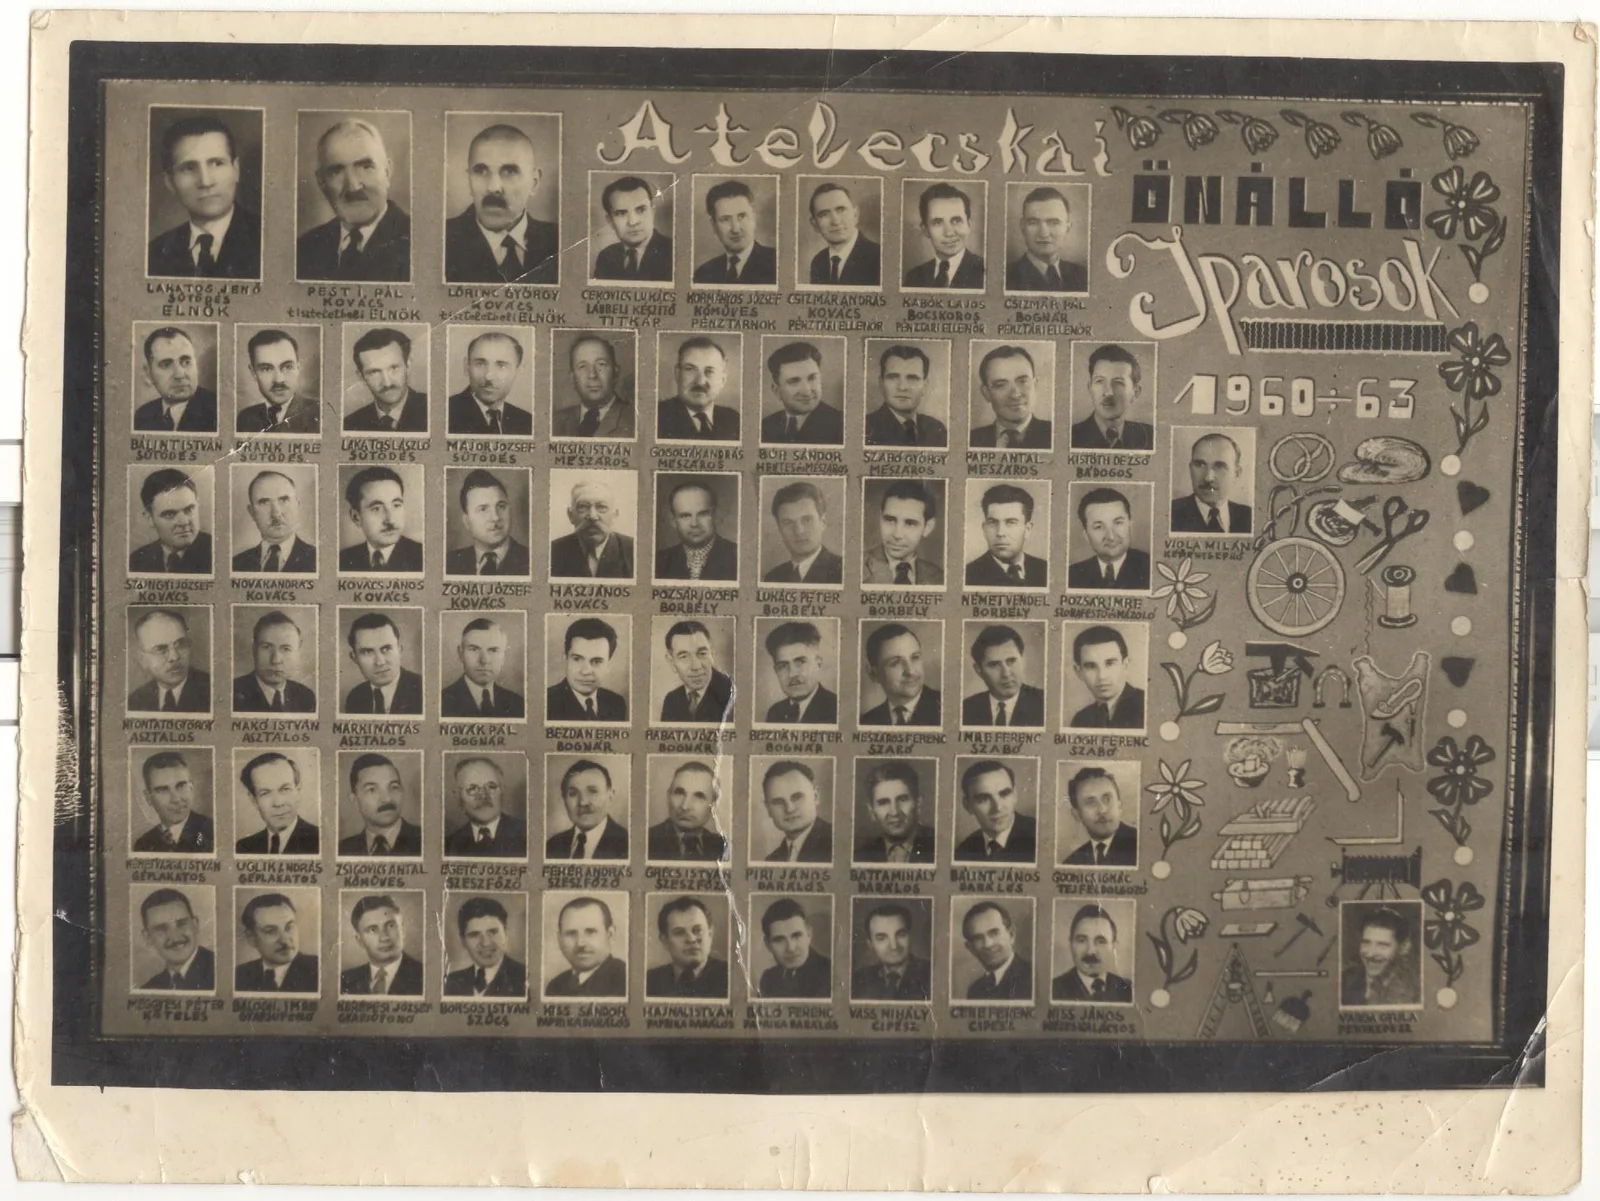 A telecskai
ÖNÁLLÓ
Iparosok
1960÷63
LAKATOS JENŐ
SÜTÖDÉS
ELNÖK
PESTI. PÁL.
KOVÁCS
tiszteletbeli ELNÖK
LŐRINC GYÖRGY
KOVÁCS
tiszteletbeli ELNÖK
CEKOVICS LUKÁCS
LÁBBELI KÉSZITŐ
TITKÁR
KORMÁNYOS JÓZSEF
KŐMÜVES
PÉNZTÁRNOK
CSIZMÁR ANDRÁS
KOVÁCS
PÉNZTÁRI ELLENŐR
KABÓK LAJOS
BOCSKOROS
PÉNZTÁRI ELLENŐR
CSIZMÁR PÁL
BOGNÁR
PÉNZTÁRI ELLENŐR
BÁLINT ISTVÁN
SÜTÖDÉS
FRANK IMRE
SÜTÖDÉS
LAKATOS LÁSZLÓ
SÜTÖDÉS
MAJOR JÓZSEF
SÜTÖDÉS
MICSIK ISTVÁN
MÉSZÁROS
GOGOLYÁK ANDRÁS
MÉSZÁROS
BÚH SÁNDOR
HENTES és MÉSZÁROS
SZABÓ GYÖRGY
MÉSZÁROS
PAPP ANTAL
MÉSZÁROS
KISTÓTH DEZSŐ
BÁDOGOS
VIOLA MILÁN
KÉMÉNYSEPRŐ
JÓZSEF
KOVÁCS
NOVÁK ANDRÁS
KOVÁCS
KOVÁCS JÁNOS
KOVÁCS
ZÓNAI JÓZSEF
KOVÁCS
HÁSZ JÁNOS
KOVÁCS
POZSÁR JÓZSEF
BORBÉLY
LUKÁCS PÉTER
BORBÉLY
DEÁK JÓZSEF
BORBÉLY
NÉMET VENDEL
BORBÉLY
POZSÁR IMRE
SZOBAFESTŐ és MÁZOLÓ
GYÖRGY
ASZTALOS
MAKÓ ISTVÁN
ASZTALOS
MÁRKI MÁTYÁS
ASZTALOS
NOVÁK PÁL
BOGNÁR
BEZDÁN ERNŐ
BOGNÁR
RABATA JÓZSEF
BOGNÁR
BEZDÁN PÉTER
BOGNÁR
MÉSZÁROS FERENC
SZABÓ
IMRE FERENC
SZABÓ
BALOGH FERENC
SZABÓ
NÉMETVARGA ISTVÁN
GÉPLAKATOS
UGLIK ANDRÁS
GÉPLAKATOS
ZSIGOVICS ANTAL
KŐMÜVES
ÉGETŐ JÓZSEF
SZESZFŐZŐ
FEHÉR ANDRÁS
SZESZFŐZŐ
GRÉCS ISTVÁN
SZESZFŐZŐ
PIRI JÁNOS
DARÁLÓS
BATTA MIHÁLY
DARÁLÓS
BÁLINT JÁNOS
DARÁLÓS
IGNÁC
TEJFELDOLGOZÓ
MEGGYESI PÉTER
KÖTELES
BALOGH. IMRE
KEREPESI JÓZSEF
BORSOS ISTVÁN
SZÜCS
KISS SÁNDOR
PAPRIKA DARÁLÓS
HAJNAL ISTVÁN
PAPRIKA DARÁLÓS
BALÓ FERENC
PAPRIKA DARÁLÓS
VASS MIHÁLY
CIPÉSZ
FERENC
CIPÉSZ
KISS JÁNOS
VARGA GYULA
FÉNYKÉPÉSZ